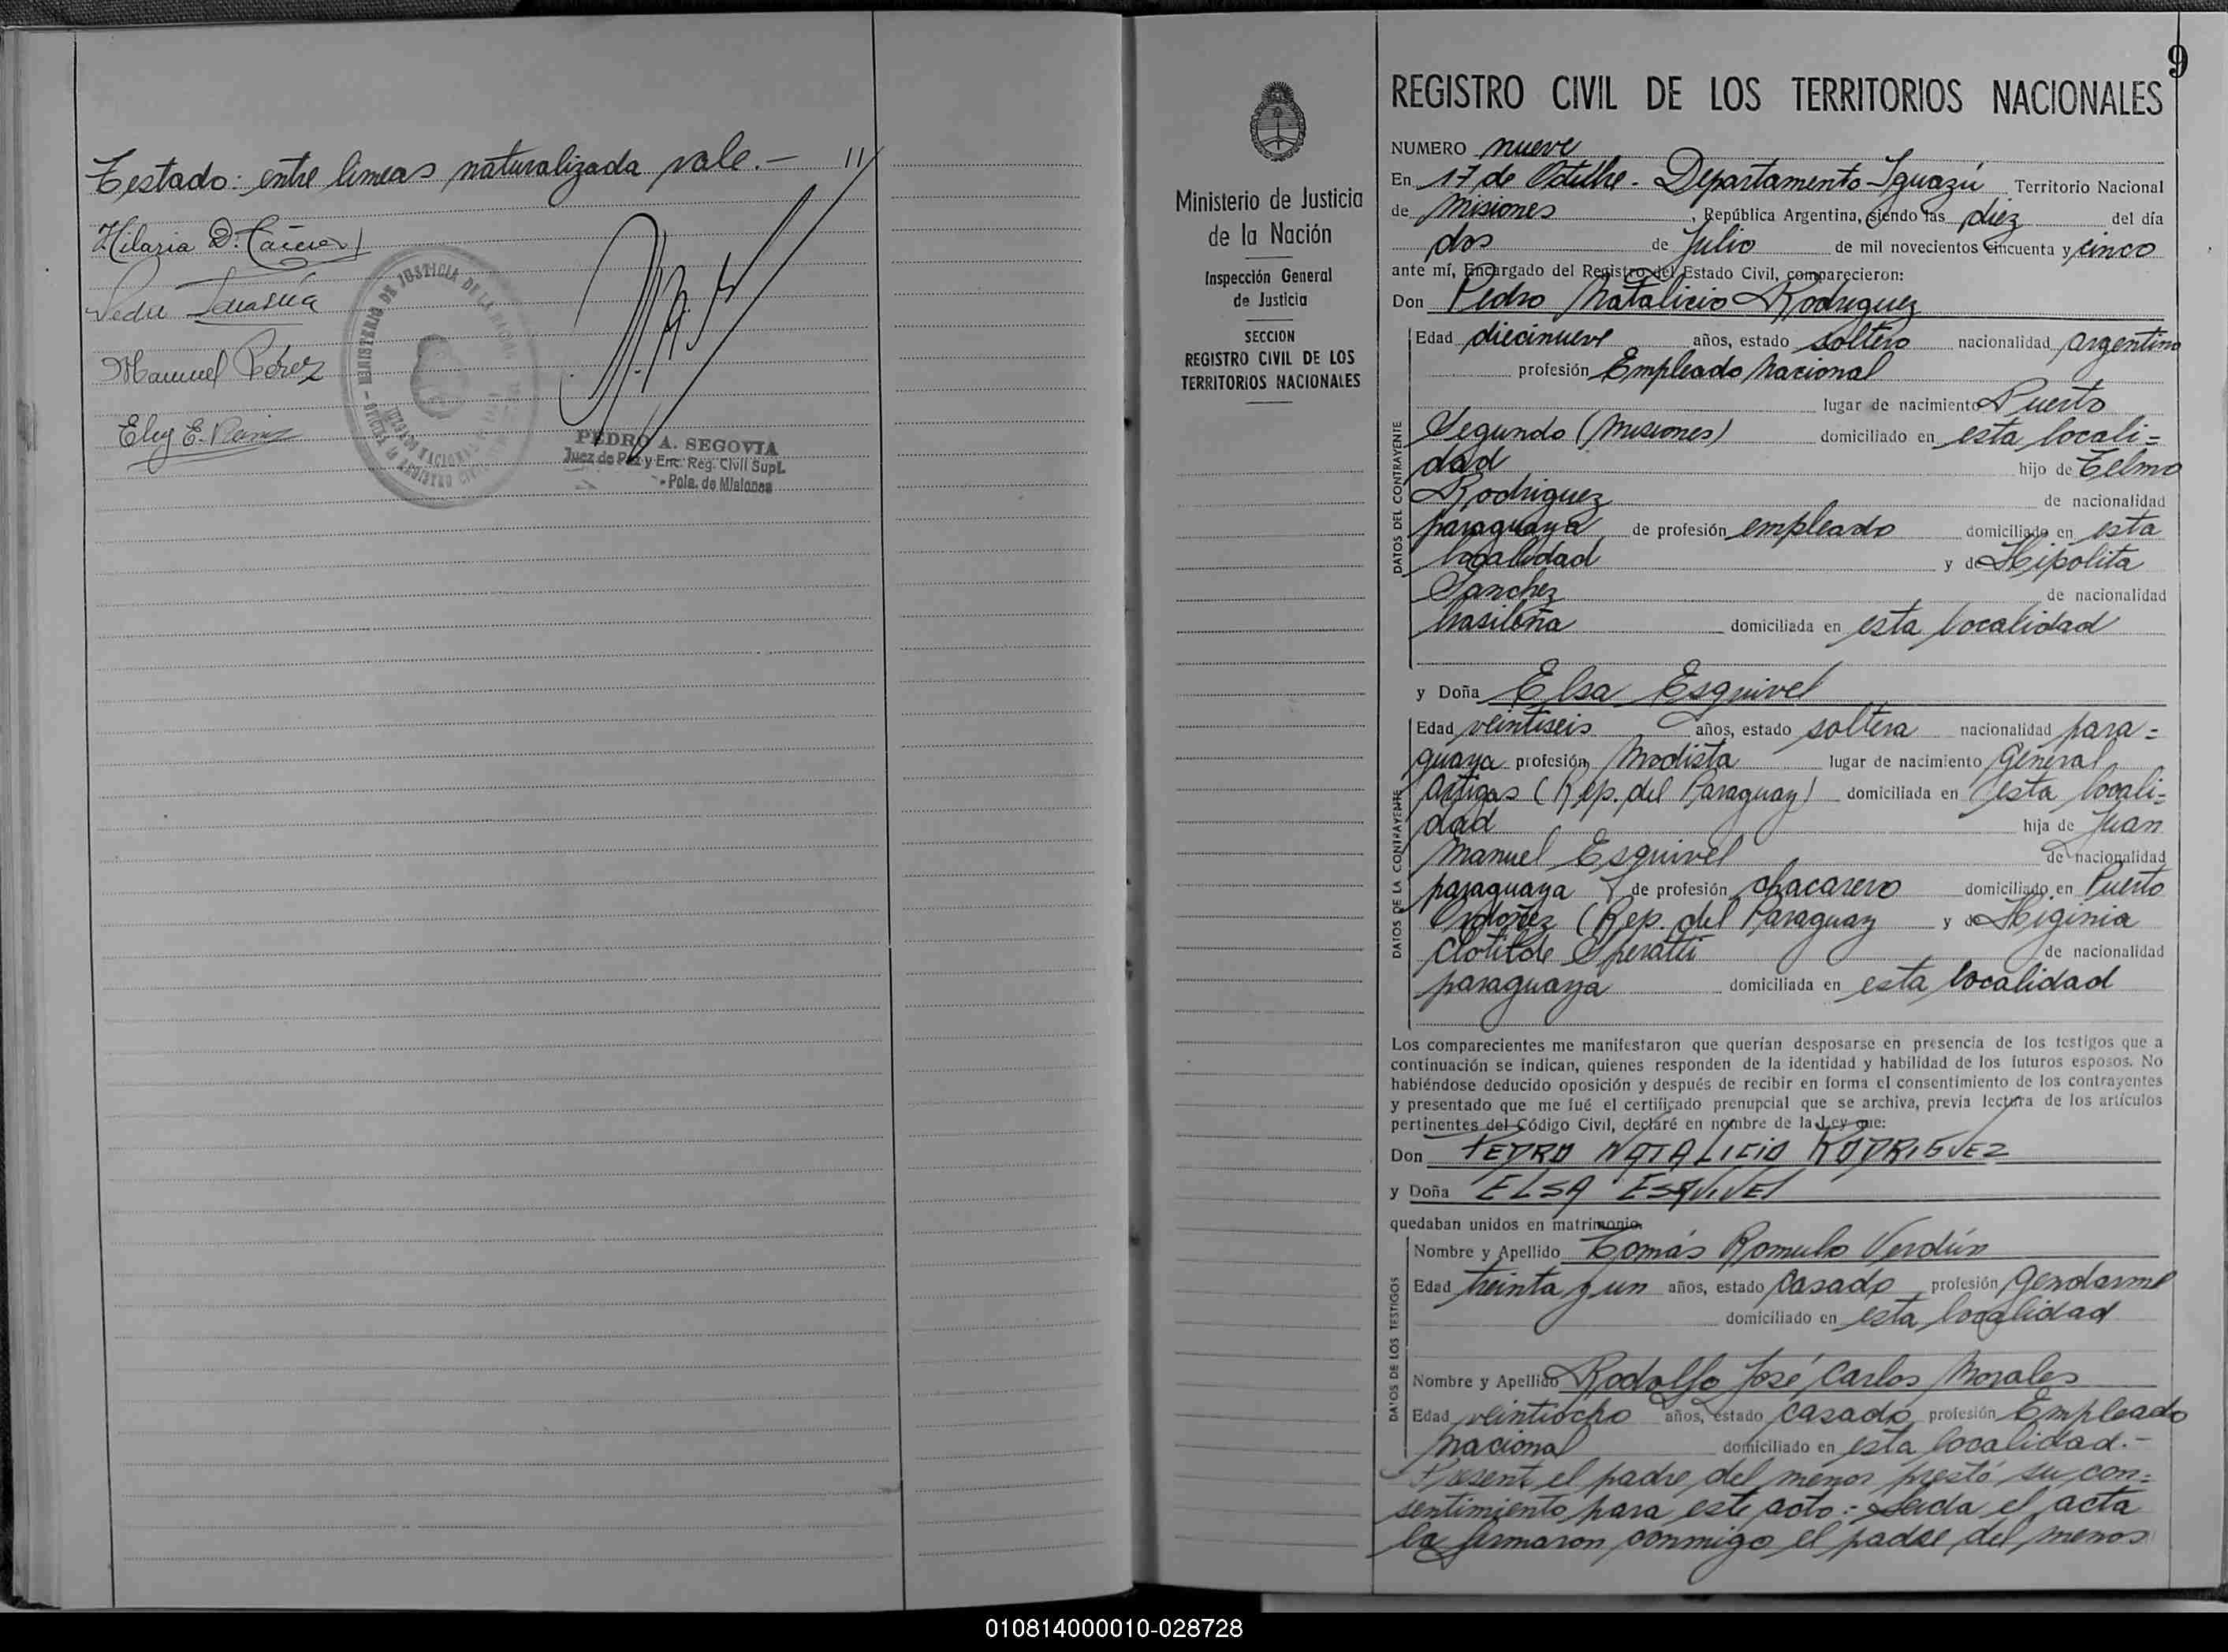 Testado: entre lineas naturalizada vale.- 11
Hilaria D.
Manuel Pérez
Eley E.
MINISTERIO DE JUSTICIA DE LA NACION
PEDRO A. SEGOVIA
Juez de Paz y Enc. Reg. Civil Supl.
Pcia. de Misiones
9
Ministerio de Justicia
de la Nación
Inspección General
de Justicia
SECCION
REGISTRO CIVIL DE LOS
TERRITORIOS NACIONALES
REGISTRO CIVIL DE LOS TERRITORIOS NACIONALES
NUMERO nueve
En 17 de Octubre - Departamento Iguazú Territorio Nacional
de Misiones, República Argentina, siendo las diez del día
dos de Julio de mil novecientos cincuenta y cinco
ante mí, Encargado del Registro del Estado Civil, comparecieron:
Don Pedro Natalicio Rodriguez
DATOS DEL CONTRAYENTE
Edad diecinueve años, estado soltero nacionalidad argentino
profesión Empleado Nacional
lugar de nacimiento Puerto
Segundo (Misiones) domiciliado en esta locali=
dad hijo de Telmo
Rodriguez de nacionalidad
paraguaya de profesión empleado domiciliado en esta
localidad y de Hipolita
Sanchez de nacionalidad
brasileña domiciliada en esta localidad
y Doña Elsa Esquivel
DATOS DE LA CONTRAYENTE
Edad veintiseis años, estado soltera nacionalidad para=
guaya profesión Modista lugar de nacimiento General
Artigas (Rep. del Paraguay) domiciliada en esta locali=
dad hija de Juan
Manuel Esquivel de nacionalidad
paraguaya de profesión chacarero domiciliado en Puerto
Ordoñez (Rep. del Paraguay y de Higinia
Clotilde Speratti de nacionalidad
paraguaya domiciliada en esta localidad
Los comparecientes me manifestaron que querían desposarse en presencia de los testigos que a
continuación se indican, quienes responden de la identidad y habilidad de los futuros esposos. No
habiéndose deducido oposición y después de recibir en forma el consentimiento de los contrayentes
y presentado que me fué el certificado prenupcial que se archiva, previa lectura de los artículos
pertinentes del Código Civil, declaré en nombre de la Ley que:
Don PEDRO NATALICIO RODRIGUEZ
y Doña ELSA ESQUIVEL
quedaban unidos en matrimonio.
DATOS DE LOS TESTIGOS
Nombre y Apellido Tomás Romulo Verdún
Edad treinta y un años, estado casado profesión Gendarme
domiciliado en esta localidad
Nombre y Apellido Rodolfo José Carlos Morales
Edad veintiocho años, estado casado profesión Empleado
Nacional domiciliado en esta localidad.-
Presente el padre del menor prestó su con=
sentimiento para este acto:- Leida el acta
la firmaron conmigo el padre del menor
010814000010-028728